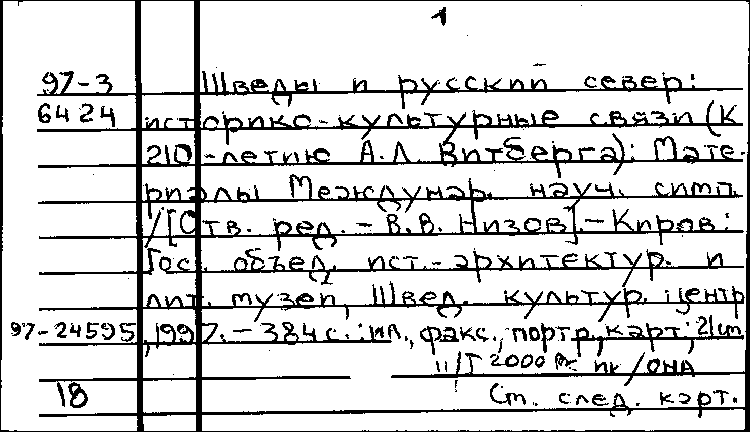 1
97-3 Шведы и русский север:
6424 историко-культурные связи (К
210-летию А.Л. Витберга): Мате-
риалы Междунар. науч. симп.
/[Отв. ред. - В.В. Низов]. - Киров:
Гос. объед. ист.-архитектур. и
лит. музей, Швед. культур. центр
97-24595, 1997. - 384 с.: ил., факс., портр., карт; 21 cm
ПК/ОНА
18 Cm. след. карт.